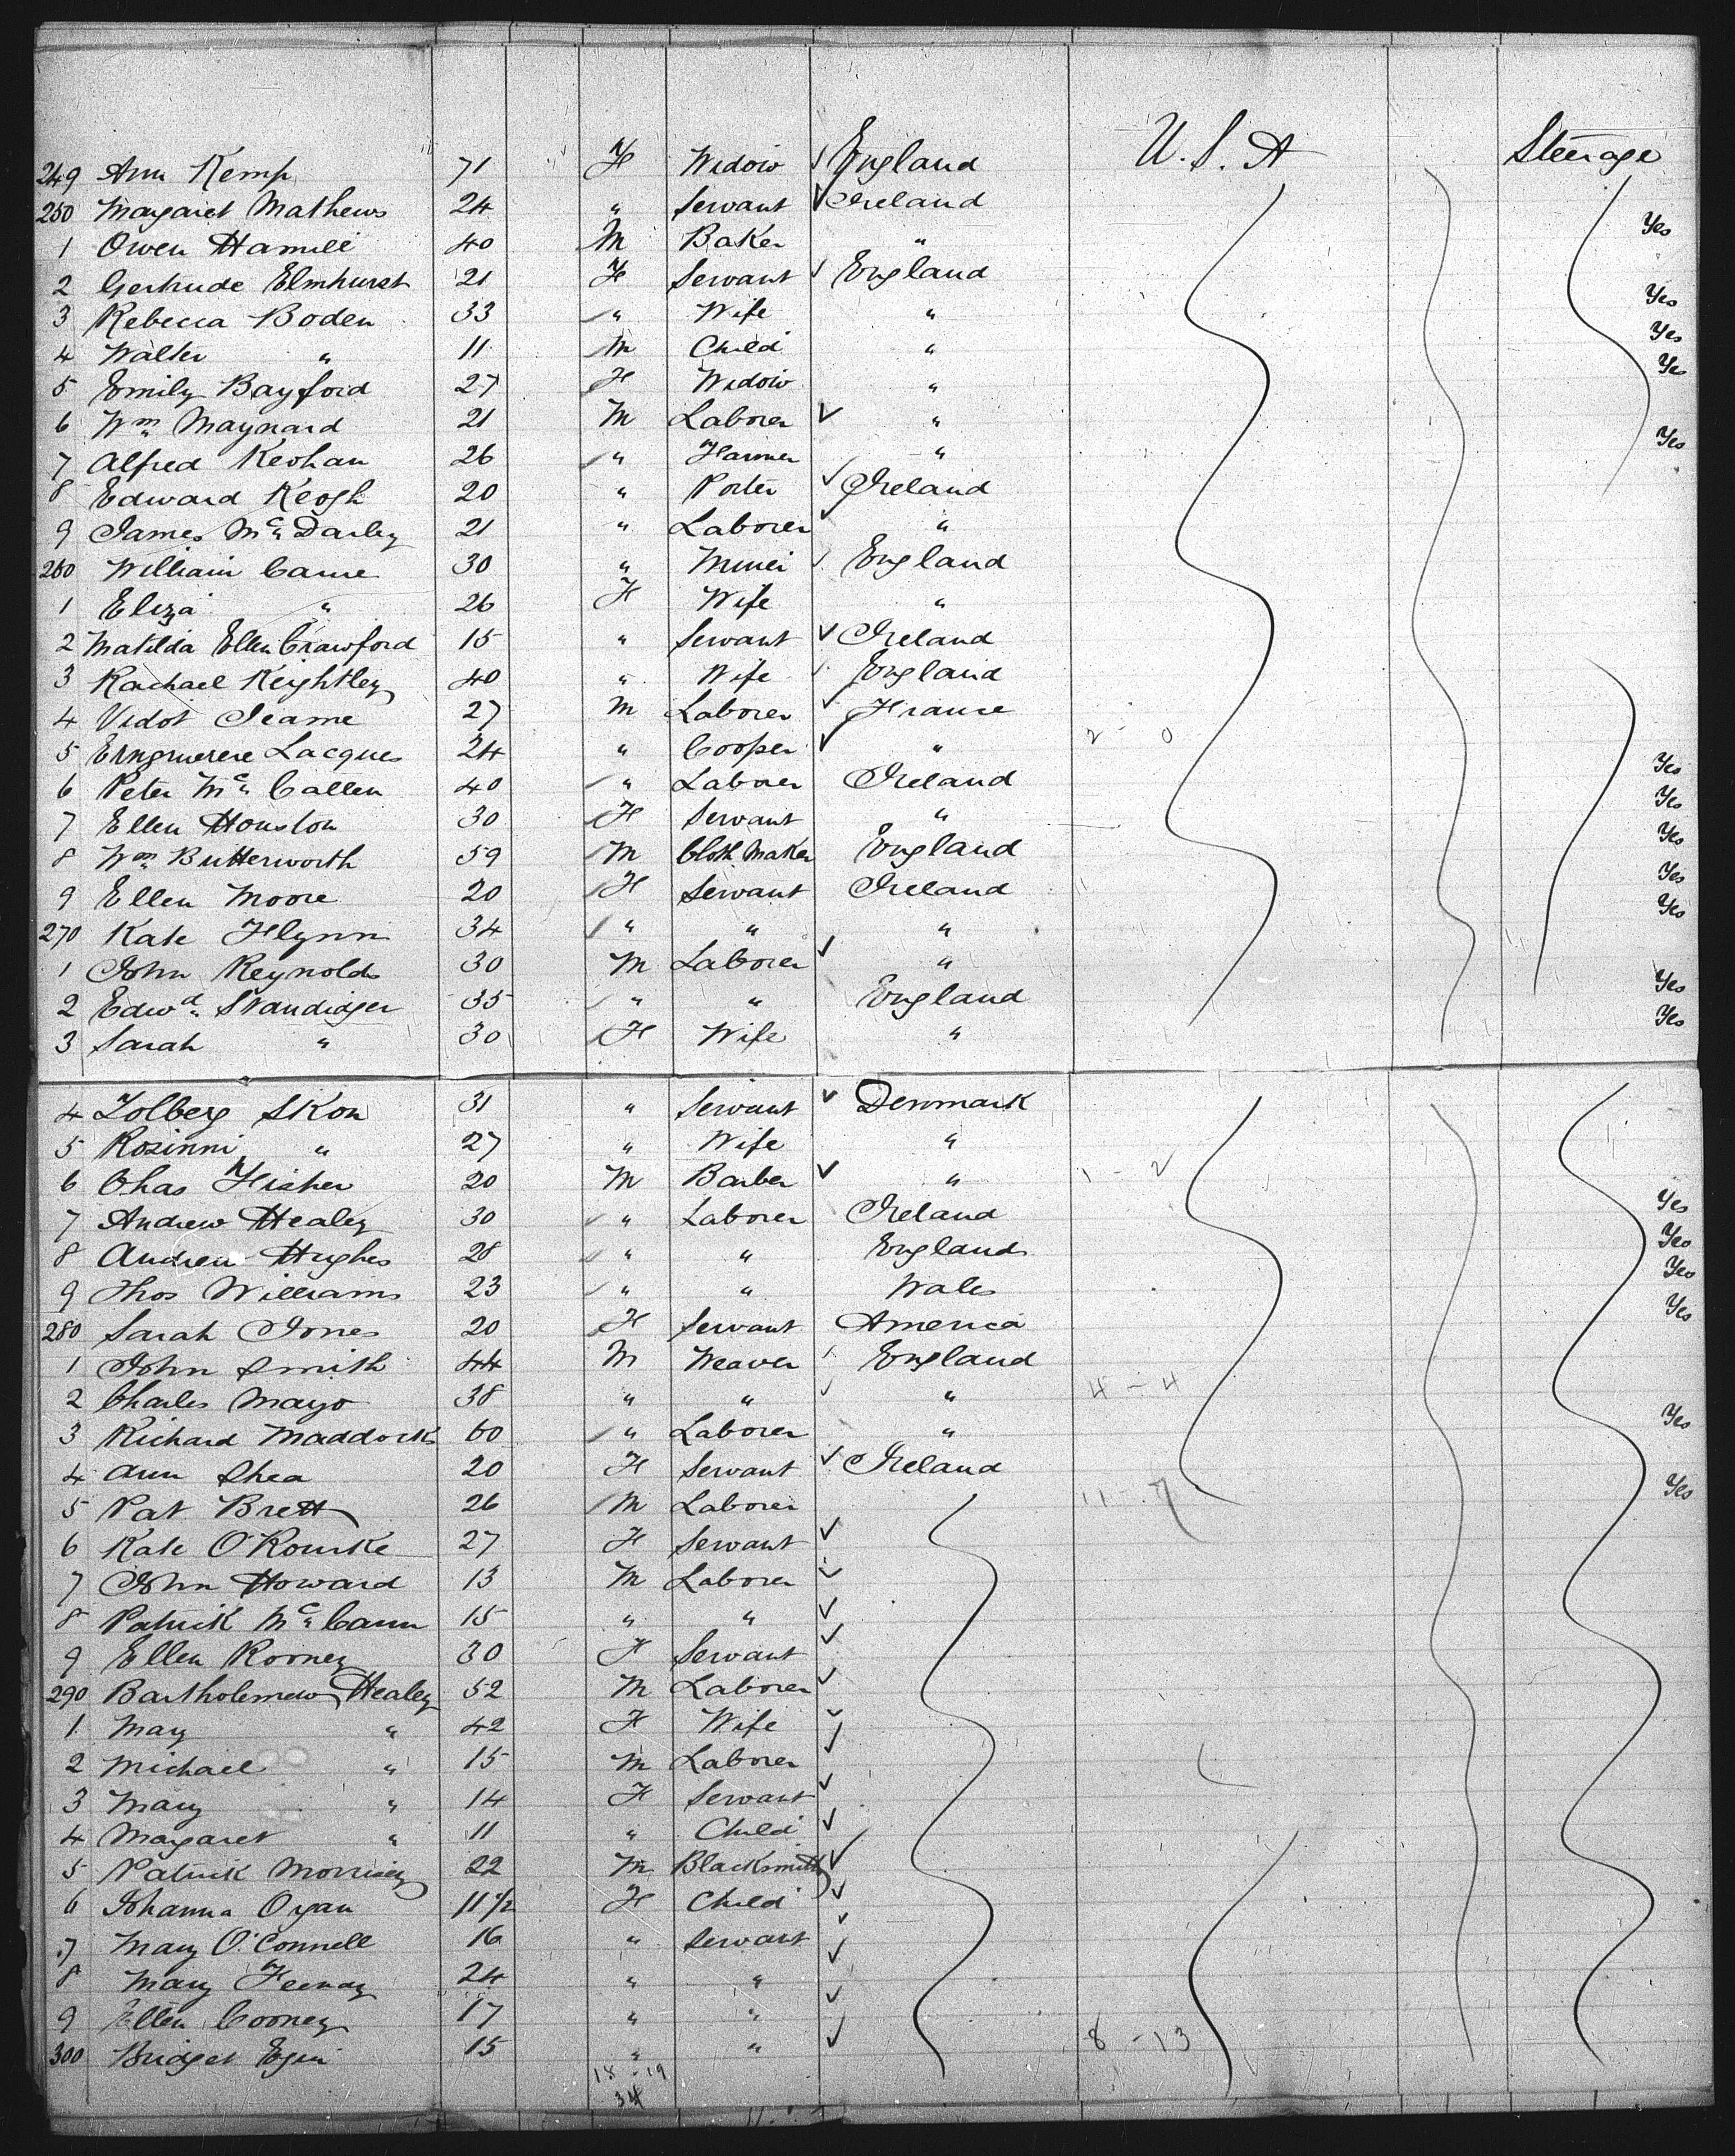 249 Ann Kemp 71 F Widow ✓ England U.S.A Steerage
250 Margaret Mathews 24 " Servant ✓ Ireland
1 Owen Hamill 40 M Baker " Yes
2 Gertrude Elmhurst 21 F Servant ✓ England
3 Rebecca Boden 33 " Wife " Yes
4 Walter " 11 M Child " Yes
5 Emily Bayford 27 F Widow " Yes
6 Wm Maynard 21 M Laborer ✓ "
7 Alfred Keohan 26 " Farmer " Yes
8 Edward Keogh 20 " Porter ✓ Ireland
9 James Mc Darley 21 " Laborer ✓ "
260 William Carne 30 " Miner ✓ England
1 Eliza " 26 F Wife "
2 Matilda Ellen Crawford 15 " Servant ✓ Ireland
3 Rachael Keightley 40 " Wife ✓ England
4 Vidot 27 M Laborer ✓ France
5 Lacques 24 " Cooper ✓ " 2 - 0
6 Peter Mc Callen 40 " Laborer Ireland Yes
7 Ellen Houston 30 F Servant " Yes
8 Wm Butterworth 59 M Cloth Maker England Yes
9 Ellen Moore 20 F Servant Ireland Yes
270 Kate Flynn 34 " " " Yes
1 John Reynolds 30 M Laborer ✓ "
2 Edwd Standidger 35 " " England Yes
3 Sarah " 30 F Wife " Yes
4 Tolberg Skon 31 " Servant ✓ Denmark
5 Rosinni " 27 " Wife "
6 Chas Fisher 20 M Barber ✓ " 1 - 2
7 Andrew Healey 30 " Laborer Ireland Yes
8 Andrew Hughes 28 " " England Yes
9 Thos Williams 23 " " Wales Yes
280 Sarah Jones 20 F Servant America Yes
1 John Smith 44 M Weaver ✓ England
2 Charles Mayo 38 " " ✓ " 4 - 4
3 Richard Maddocks 60 " Laborer " Yes
4 Ann Shea 20 F Servant ✓ Ireland
5 Pat Brett 26 M Laborer 11 - 7 Yes
6 Kate O'Rourke 27 F Servant ✓
7 John Howard 13 M Laborer ✓
8 Patrick Mc Cann 15 " " ✓
9 Ellen Rooney 30 F Servant ✓
290 Bartholemew Healey 52 M Laborer ✓
1 Mary " 42 F Wife ✓
2 Michael " 15 M Laborer ✓
3 Mary " 14 F Servant ✓
4 Margaret " 11 " Child ✓
5 Patrick Morrisey 22 M Blacksmith ✓
6 Johanna Oyan 11 1/2 F Child ✓
7 Mary O'Connell 16 " Servant ✓
8 Mary Feenay 24 " " ✓
9 Ellen Cooney 17 " " ✓
300 Bridget Egin 15 " " ✓ 8 - 13
18 - 19
34